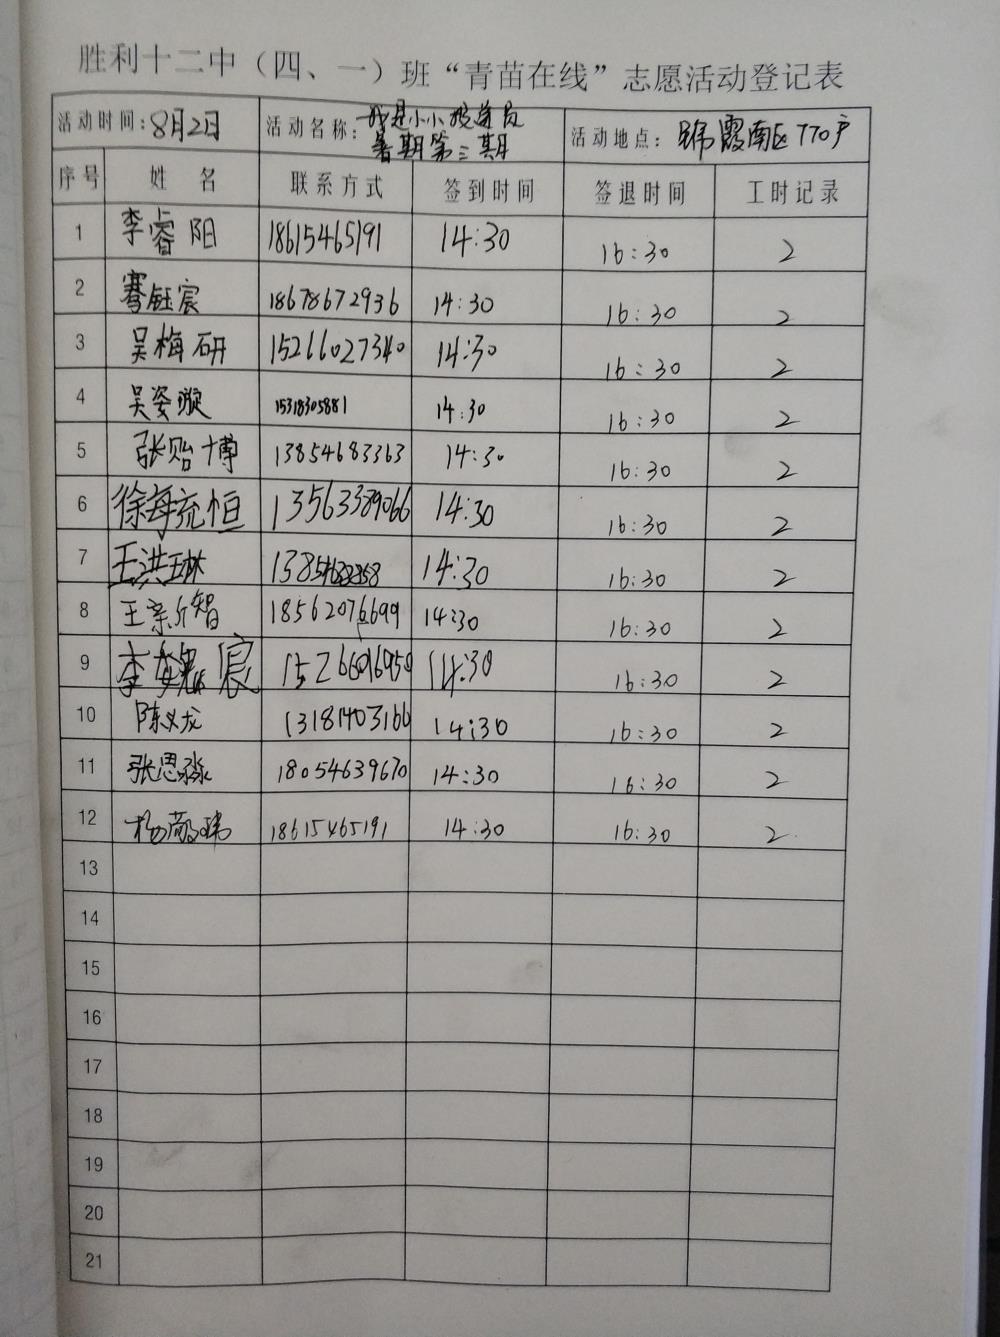 胜利十二中（四、一）班“青苗在线”志愿活动登记表
活动时间：8月2日 活动名称：我是小小投递员 活动地点： 霞南区770户
暑期第三期
序号 姓名 联系方式 签到时间 签退时间 工时记录
1 李睿阳 18615465191 14:30 16:30 2
2 骞钰宸 18678672936 14:30 16:30 2
3 吴梅研 15266027340 14:30 16:30 2
4 吴姿璇 15318305881 14:30 16:30 2
5 张贻博 13854683363 14:30 16:30 2
6 徐每充恒 13563389066 14:30 16:30 2
7 王洪琳 14:30 16:30 2
8 王亲智 18562076699 14:30 16:30 2
9 李 宸 15266096950 14:30 16:30 2
10 陈义龙 13181403166 14:30 16:30 2
11 张思淼 18054639670 14:30 16:30 2
12 杨 18615465191 14:30 16:30 2
13
14
15
16
17
18
19
20
21